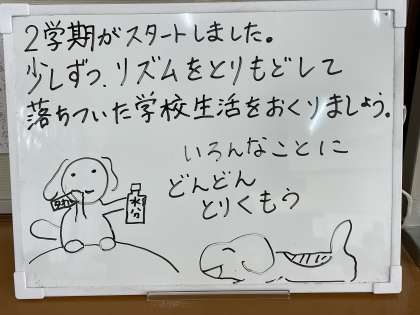 ２学期がスタートしました。
少しずつ、リズムをとりもどして
落ちついた学校生活をおくりましょう。
いろんなことに
どんどん
とりくもう
水分